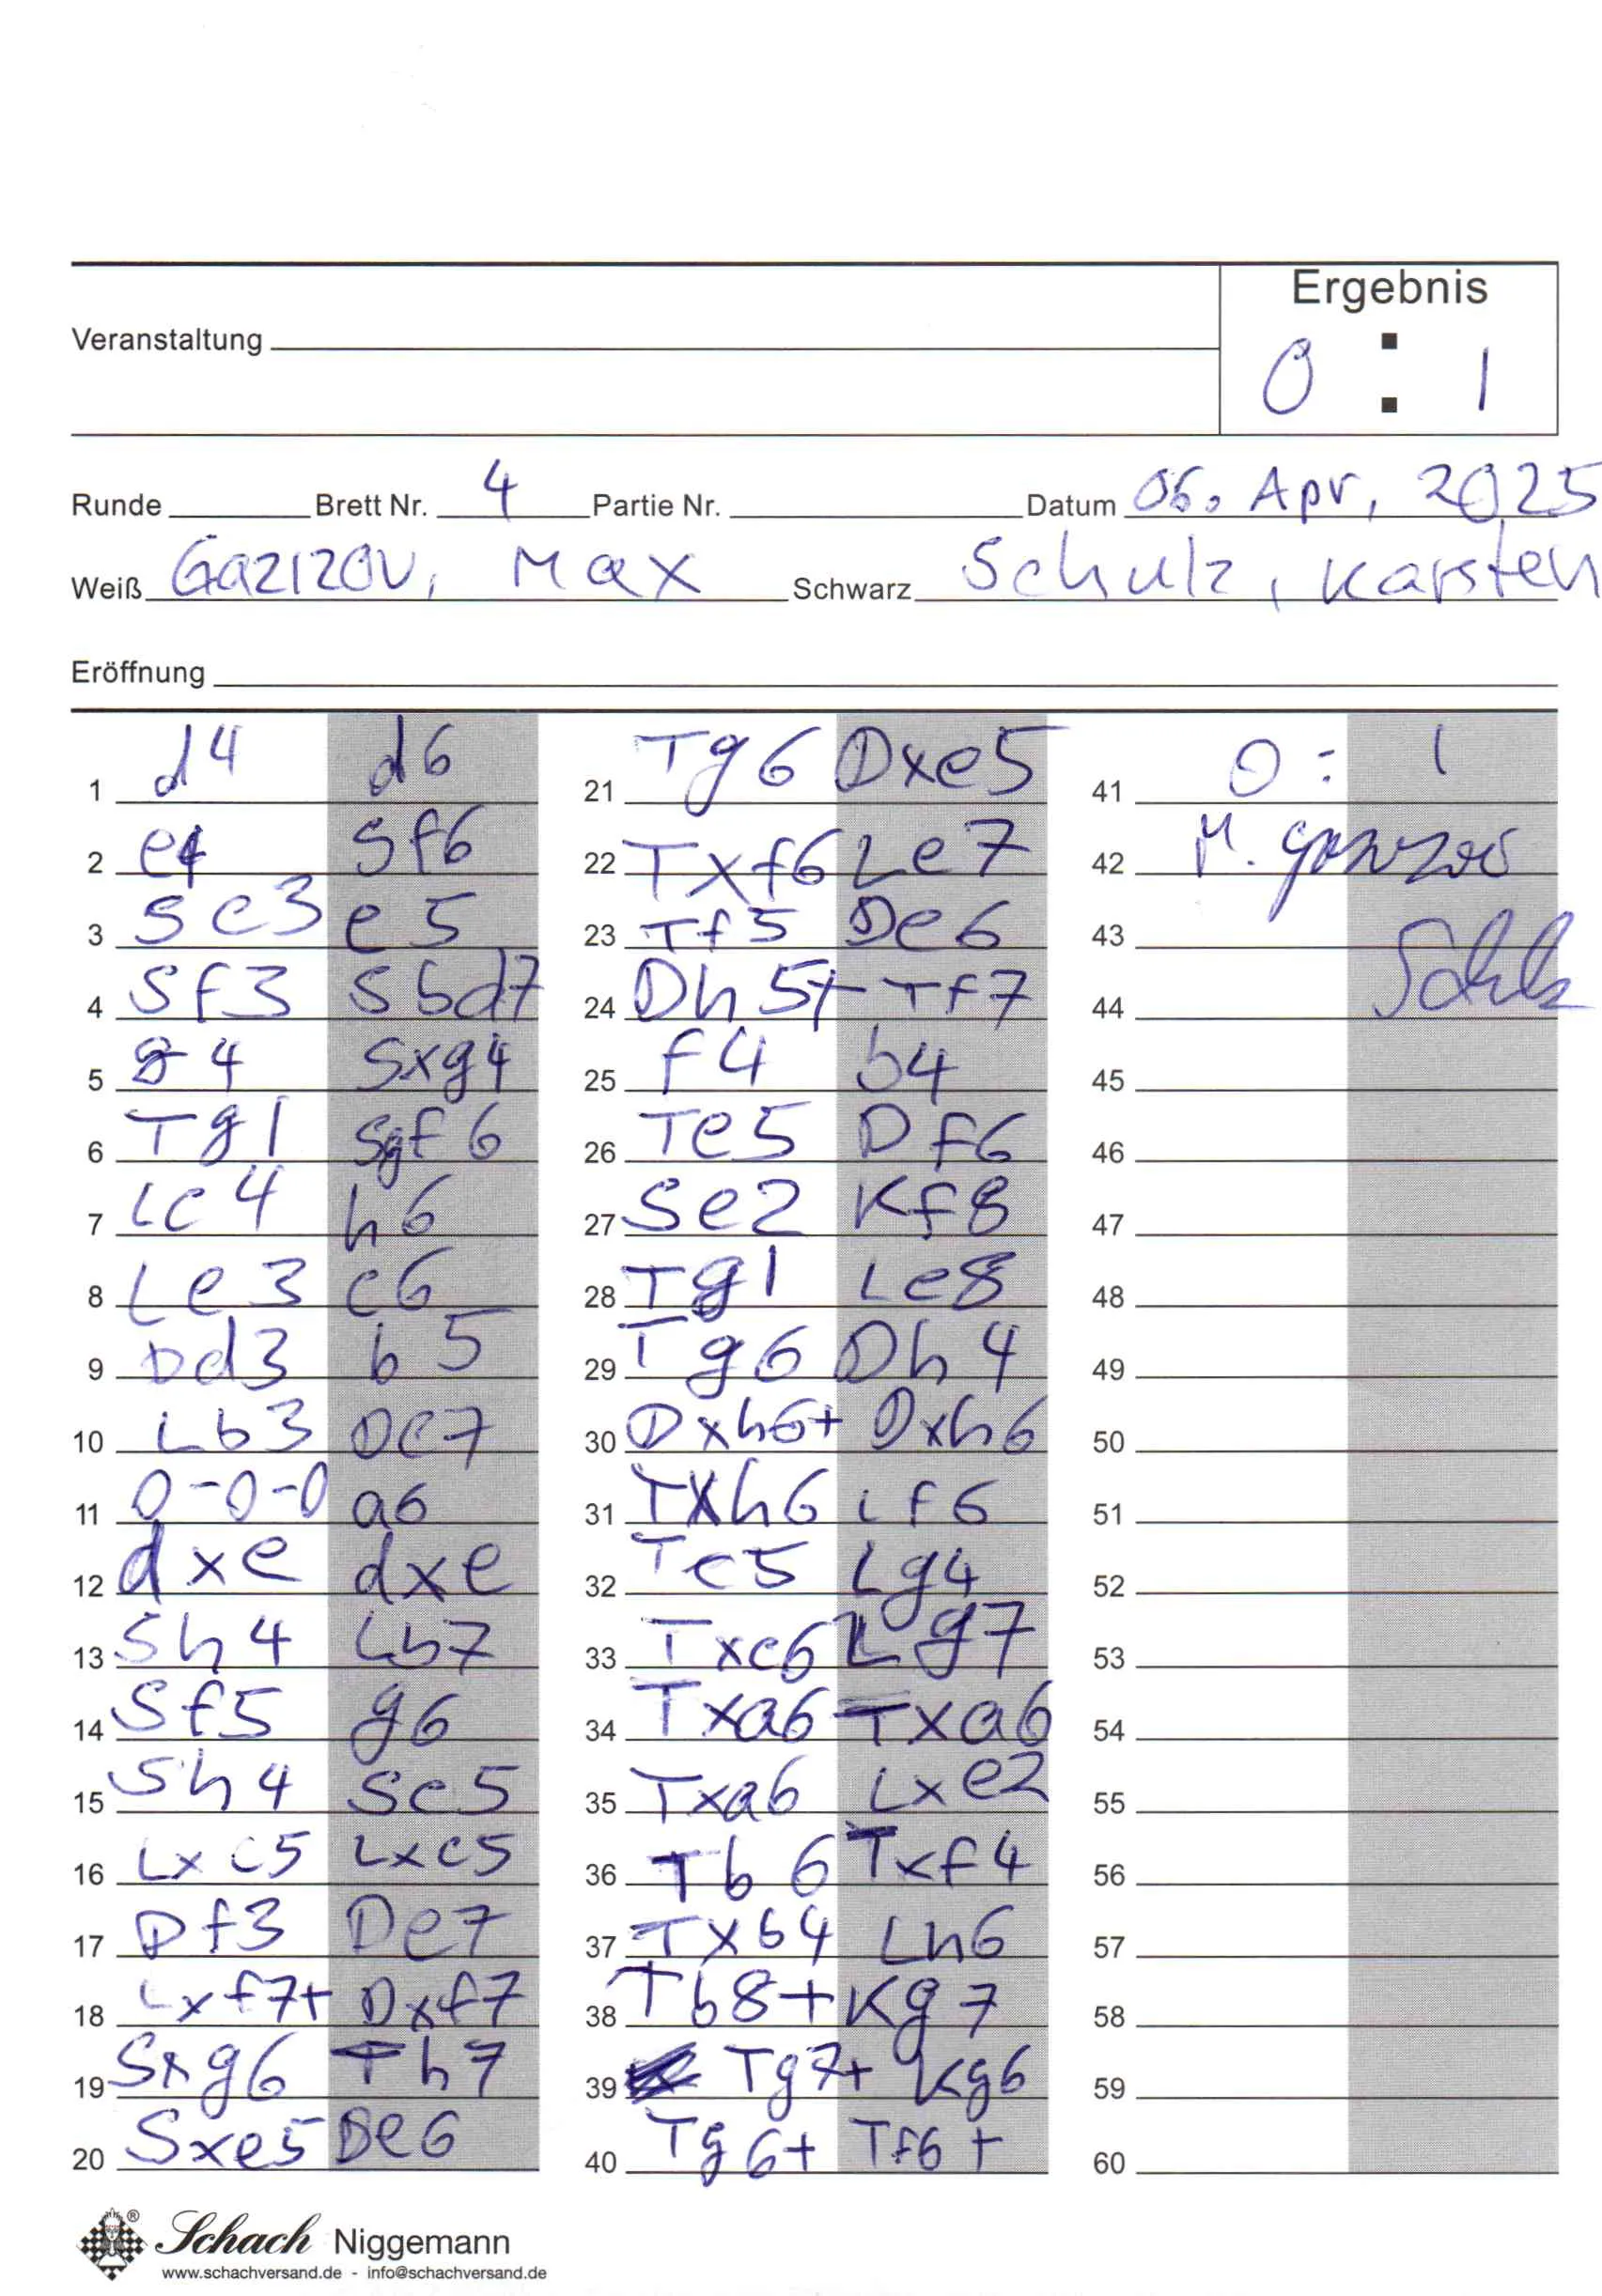 Ergebnis
Veranstaltung
0 : 1
Runde Brett Nr. 4 Partie Nr. Datum 06. Apr, 2025
Weiß Gazizov, Max Schwarz Schulz, Karsten
Eröffnung
1 d4 d6
2 e4 Sf6
3 Sc3 e5
4 Sf3 Sbd7
5 g4 Sxg4
6 Tg1 Sgf6
7 Lc4 h6
8 Le3 c6
9 Dd3 b5
10 Lb3 Dc7
11 0-0-0 a6
12 dxe dxe
13 Sh4 Lb7
14 Sf5 g6
15 Sh4 Sc5
16 Lxc5 Lxc5
17 Df3 De7
18 Lxf7+ Dxf7
19 Sxg6 Th7
20 Sxe5 De6
21 Tg6 Dxe5
22 Txf6 Le7
23 Tf5 De6
24 Dh5+ Tf7
25 f4 b4
26 Te5 Df6
27 Se2 Kf8
28 Tg1 Lc8
29 Tg6 Dh4
30 Dxh6+ Dxh6
31 Txh6 Lf6
32 Tc5 Lg4
33 Txc6 Lg7
34 Txa6 Txa6
35 Txa6 Lxe2
36 Tb6 Txf4
37 Txb4 Lh6
38 Tb8+ Kg7
39 Tg7+ Kg6
40 Tg6+ Tf6+
41 0 : 1
42 M. Gazizov
43
44 Schulz
45
46
47
48
49
50
51
52
53
54
55
56
57
58
59
60
Schach Niggemann
www.schachversand.de - info@schachversand.de